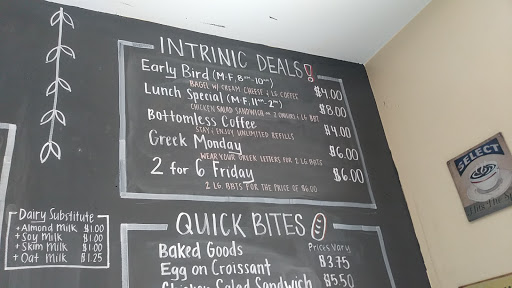 INTRINIC DEALS!
Early Bird (M-F, 8am-10am) $4.00
BAGEL W/ CREAM CHEESE & LG COFFEE
Lunch Special (M-F, 11am-2pm) $8.00
CHICKEN SALAD SANDWICH LG BBT
Bottomless Coffee $4.00
STAY & ENJOY UNLIMITED REFILLS
Greek Monday $6.00
WEAR YOUR GREEK LETTERS FOR 2 LG BBTS
2 for 6 Friday $6.00
2 LG. BBTS FOR THE PRICE OF $6.00
Dairy Substitute
+Almond Milk $1.00
+Soy Milk $1.00
+Skim Milk $1.00
+Oat Milk $1.25
QUICK BITES
Baked Goods Prices Vary
Egg on Croissant $3.75
Chicken Salad Sandwich $5.50
SELECT